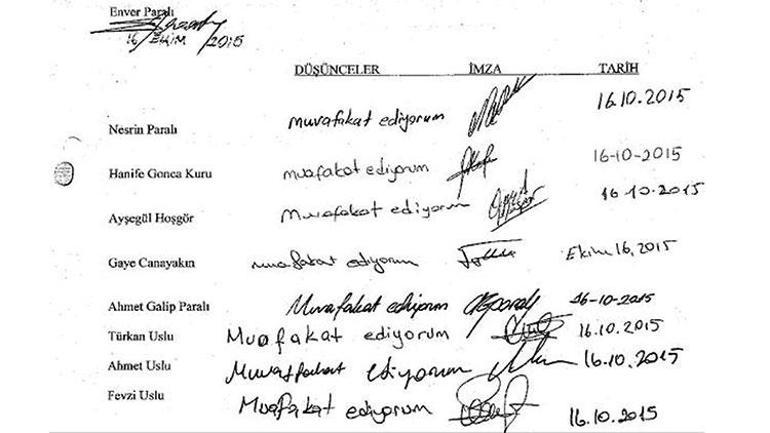 Enver Paralı
16 EKİM 2015
DÜŞÜNCELER İMZA TARİH
Nesrin Paralı muvafakat ediyorum 16.10.2015
Hanife Gonca Kuru muafakat ediyorum 16-10-2015
Ayşegül Hoşgör Muvafakat ediyorum 16.10.2015
Gaye Canayakın muafakat ediyorum Ekim 16, 2015
Ahmet Galip Paralı Muvafakat ediyorum 16-10-2015
Türkan Uslu Muafakat ediyorum 16.10.2015
Ahmet Uslu Muvaffakat ediyorum 16.10.2015
Fevzi Uslu Muafakat ediyorum 16.10.2015